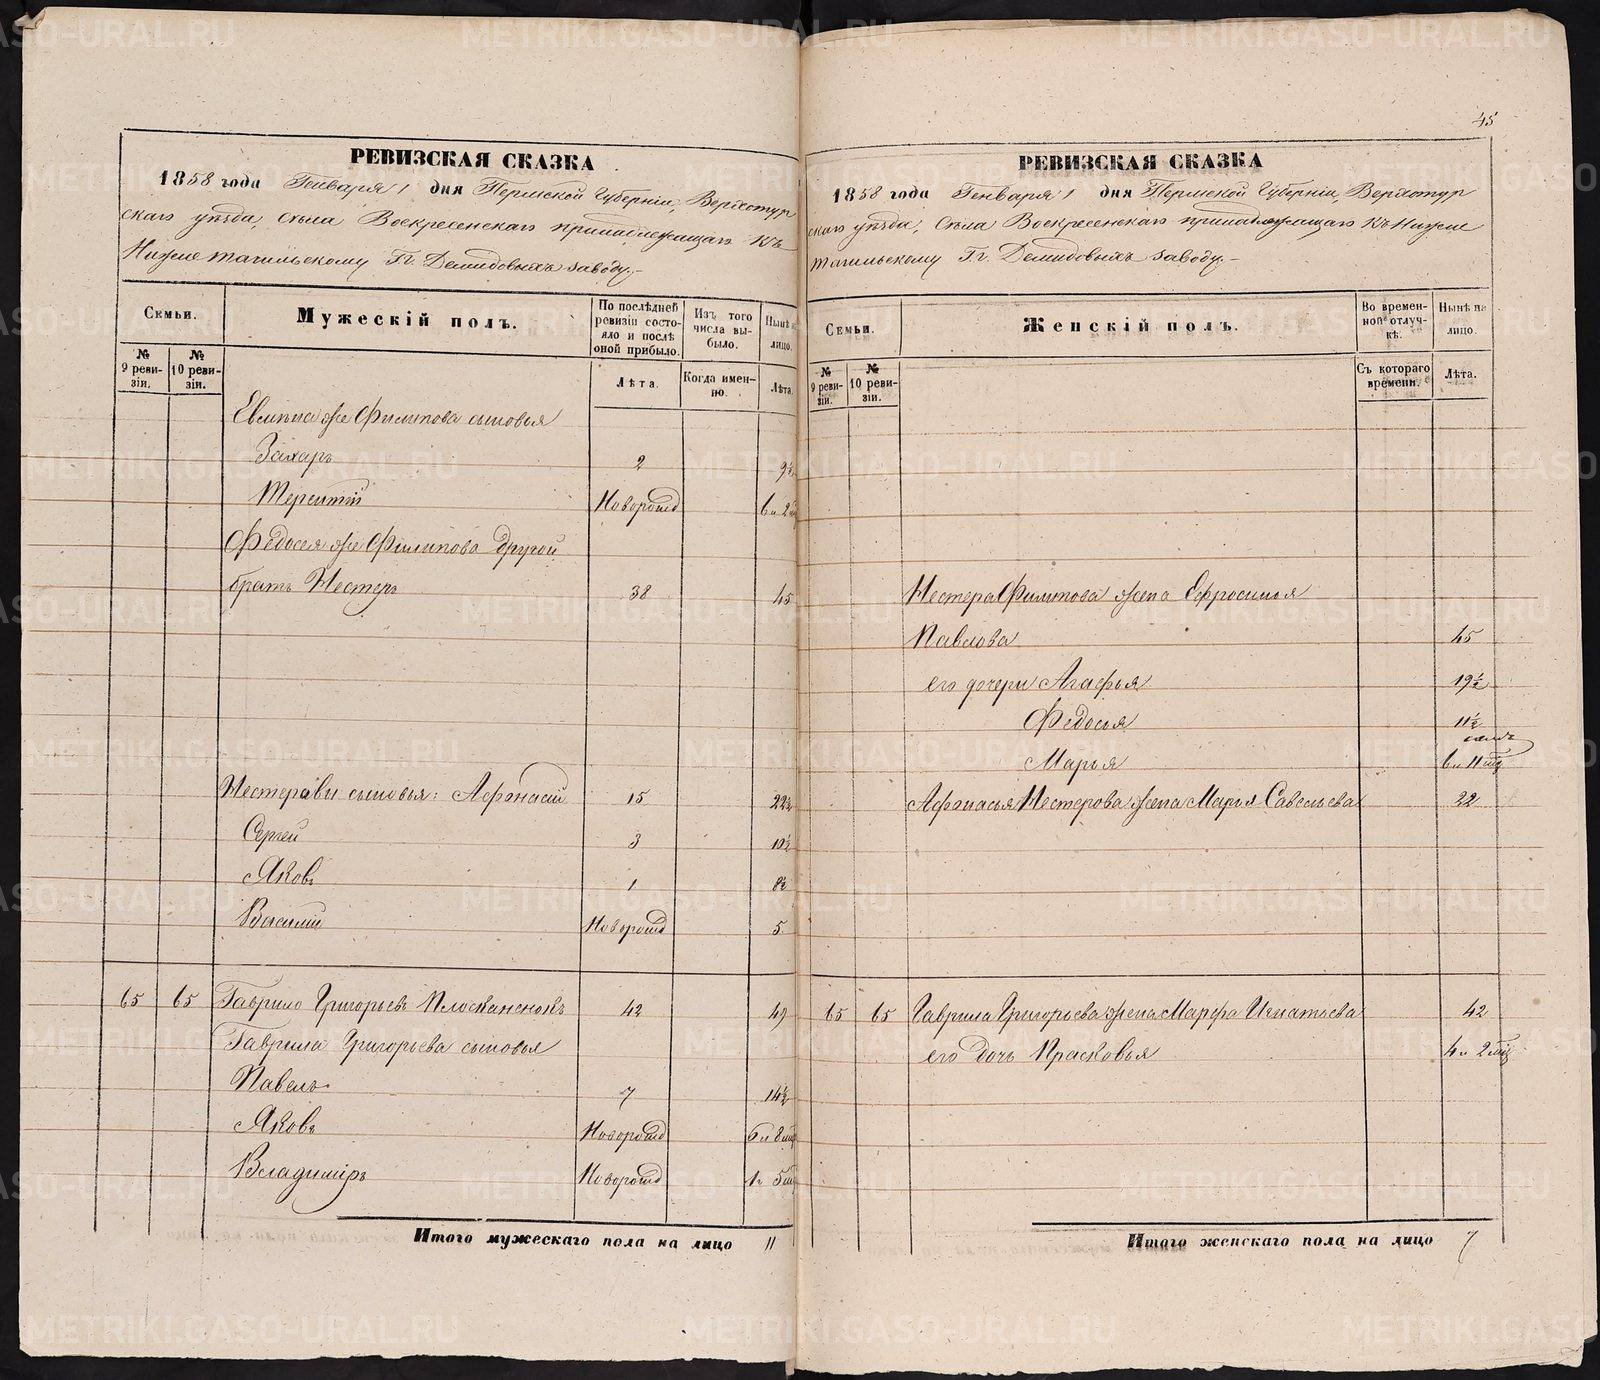 РЕВИЗСКАЯ СКАЗКА
1858 года Генваря 1 дня Пермской Губерніи, Верхотур
скаго уѣзда, Села Воскресенскаго принадлежащаго Къ
Нижне тагильскому Гг. Демидовыхъ заводу.-
Семьи.
Мужескій полъ.
По послѣдней ревизіи состояло и послѣ оной прибыло.
Изъ того числа выбыло.
Нынѣ на лицо.
№ 9 ревизіи.
№ 10 ревизіи.
Лѣта.
Когда именно.
Лѣта.
же Филипова сыновья
Захаръ 2 9½
Терентій Новорожд
Федосея же Филипова другой
братъ Нестеръ 38 45
сыновья: Афонасій 15 22½
Сергей 3 10½
Яковъ 1 8½
Василий Новорожд 5
65 65 Гаврило Григорьевъ 42 49
Гаврила Григорьева сыновья
Павелъ 7 14½
Яковъ Новорожд
Владиміръ Новорожд
Итого мужескаго пола на лицо 11
45
РЕВИЗСКАЯ СКАЗКА
1858 года Генваря 1 дня Пермской Губерніи, Верхотур
скаго уѣзда, Села Воскресенскаго принадлежащаго Къ Нижне
тагильскому Гг. Демидовыхъ заводу.-
Семьи.
Женскій полъ.
Во временной отлучкѣ.
Нынѣ на лицо.
№ 9 ревизіи.
№ 10 ревизіи.
Съ котораго времени.
Лѣта.
Нестера Филипова жена Ефросинья
Павлова 45
его дочери Агафья 19½
Федосья 11½
Марья
Афонасья Нестерова жена Марья Савельева 22
65 65 Гаврила Григорьева жена Марфа Игнатьева 42
его дочь Прасковья
Итого женскаго пола на лицо 7
METRIKI.GASO-URAL.RU